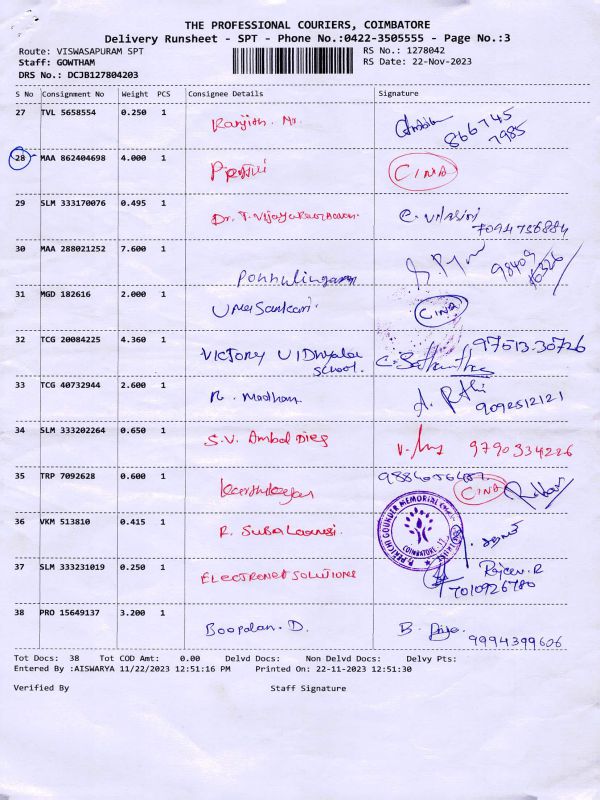 THE PROFESSIONAL COURIERS, COIMBATORE
Delivery Runsheet - SPT - Phone No.:0422-3505555 - Page No.:3
Route: VISWASAPURAM SPT RS No.: 1278042
Staff: GOWTHAM RS Date: 22-Nov-2023
DRS No.: DCJB127804203
S No Consignment No Weight PCS Consignee Details Signature
27 TVL 5658554 0.250 1 Ranjith. Mr. 866745
7985
28 MAA 862404698 4.000 1 CINA
29 SLM 333170076 0.495 1 Dr. T. C. Vilasini
7094756884
30 MAA 288021252 7.600 1 Ponnulingam 98409
16326
31 MGD 182616 2.000 1 Uma Sankari. CINA
32 TCG 20084225 4.360 1 Victory Vidhyalaa 97513-30726
School.
33 TCG 40732944 2.600 1 R. Madhan.
9092512121
34 SLM 333202264 0.650 1 S.V. Ambal Dies 9790334226
35 TRP 7092628 0.600 1 CINA
36 VKM 513810 0.415 1 R. Subalaxmi. P. PERICHI GOUNDER MEMORIAL
COIMBATORE - 17
37 SLM 333231019 0.250 1 Electronet Solutions Rajeev. R
7010926780
38 PRO 15649137 3.200 1 Boopalan. D. B. Priya.
9994399606
Tot Docs: 38 Tot COD Amt: 0.00 Delvd Docs: Non Delvd Docs: Delvy Pts:
Entered By :AISWARYA 11/22/2023 12:51:16 PM Printed On: 22-11-2023 12:51:30
Verified By Staff Signature